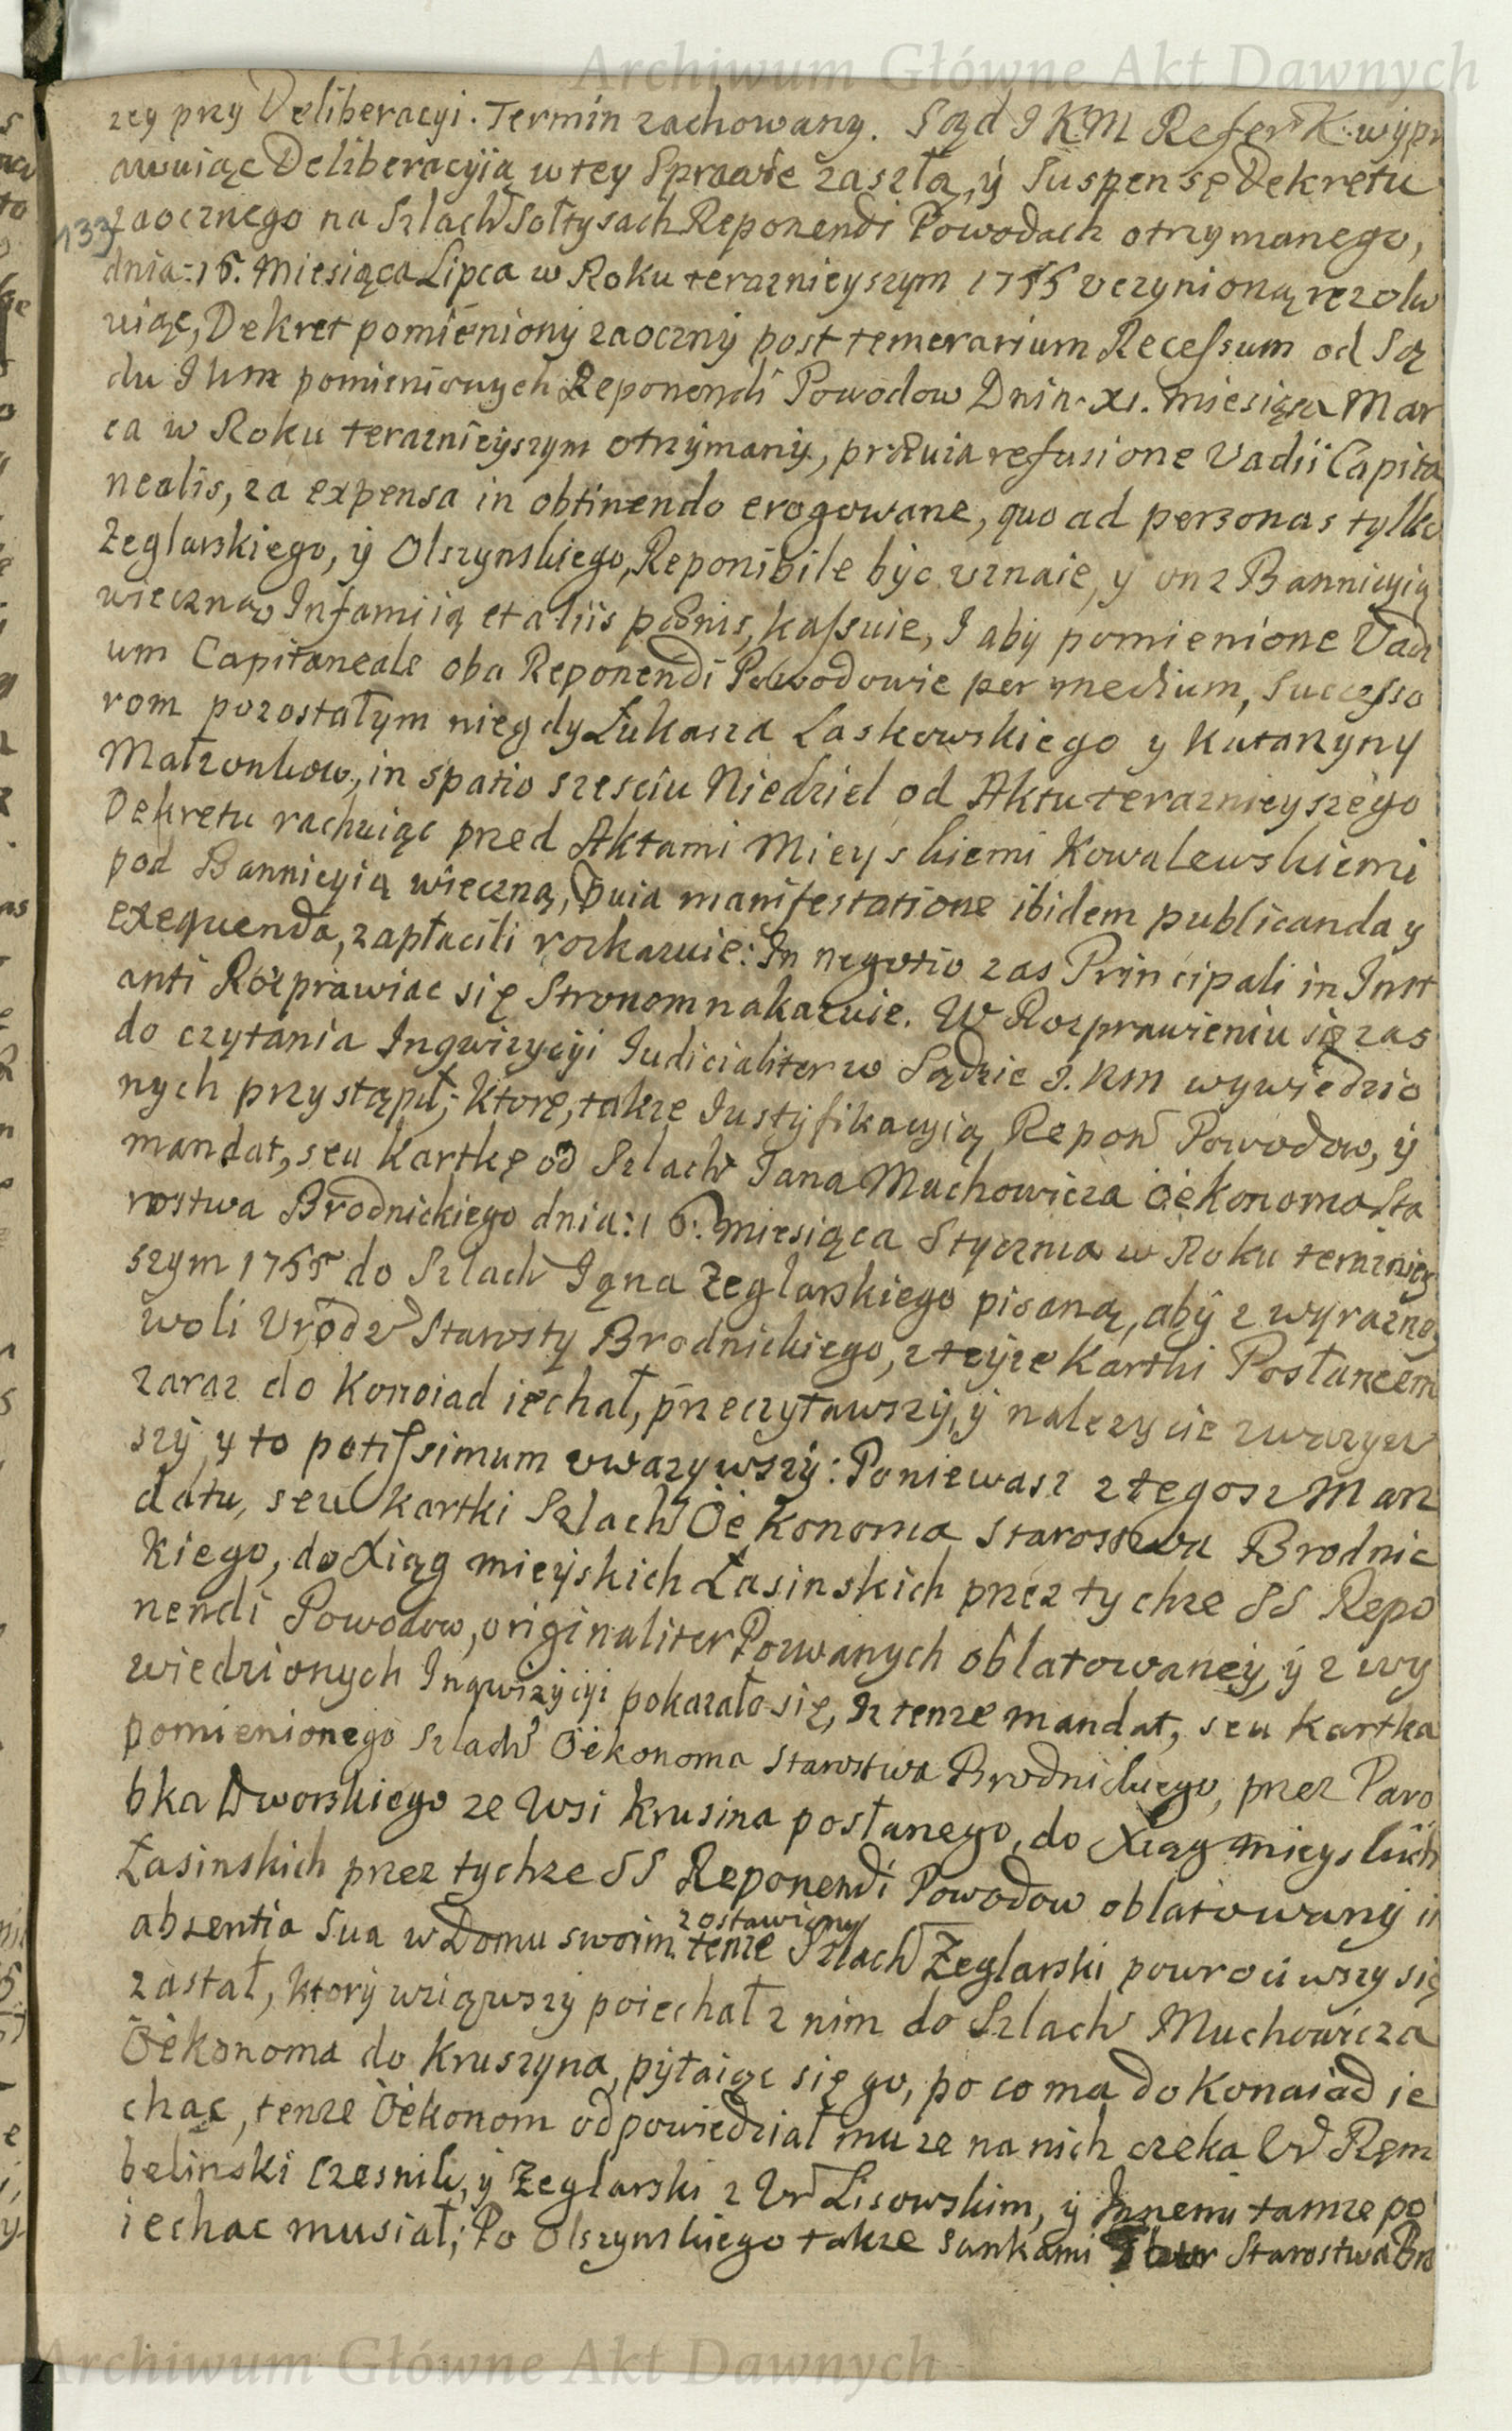 Archiwum Główne Akt Dawnych
rey przy Deliberacyi. Termin zachowany. Sąd I KM Refer K. wypr
awuiąc Deliberacyią w tey Sprawie zaszłą, y Suspensę Dekretu
133
zaocznego na Szlach Sołtysach Reponendi Powodach otrzymanego,
dnia: 15. Miesiąca Lipca w Roku teraznieyszym 1755 uczynioną rezolw
uiąc, Dekret pomieniony zaoczny post temerarium Recessum od Są
du I KM pomienionych Reponendi Powodow Dnia XI. Miesiąca Mar
ca w Roku teraznieyszym otrzymany, prævia refusione Vadii Capita
nealis, za expensa in obtinendo erogowane, quo ad personas tylko
Zeglarskiego, y Olszynskiego, Reponibile byc uznaie, y onz Bannicyią
wieczną Infamiią et aliis pœnis, kassuie, I aby pomienione Vadi
um Capitaneale oba Reponendi Powodowie per medium, Successo
rom pozostałym niegdy Łukasza Laskowskiego y Katarzyny
Małzonkow, in spatio szesciu Niedziel od Aktu teraznieyszego
Dekretu rachuiąc przed Aktami Mieyskiemi Kowalewskiemi
pod Bannicyią wieczną, Pvia manifestatione ibidem publicanda y
exequenda, zapłacili roskazuie: In negotio zas Principali in Inst
anti Rozprawiac się Stronom nakazuie. W Rozprawieniu się zas
do czytania Inqwizycyi Iudicialiter w Sądzie I. KM wywiedzio
nych przystąpił; Ktorę, takze Iustyfikacyią Repon Powodow, y
mandat, seu Kartkę od Szlach Iana Muchowicza Oekonoma Sta
rostwa Brodnickiego dnia: 16. Miesiąca Stycznia w Roku teraźniey
szym 1755 do Szlach Iana Zeglarskiego pisaną, aby z wyrazney
woli Urodz Starosty Brodnickiego, z teyze Kartki Posłancem
zaraz do Konoiad iechał, przeczytawszy, y nalezycie zwazyw
szy y to potissimum uwazywszy: Poniewasz z tegosz Man
datu, seu Kartki Szlach Oekonoma Starostwa Brodnic
kiego, do Xiąg mieyskich Łasinskich przez tychze SS Repo
nendi Powodow, originaliter Pozwanych oblatowaney, y z wy
wiedzionych Inqwizycyi pokazało się, Iz tenze mandat, seu Kartka
pomienionego Szlach Oekonoma Starostwa Brodnickiego, przez Paro
bka Dworskiego ze Wsi Krusina posłanego, do Xiąg mieyskich
Łasinskich przez tychze SS Reponendi Powodow oblatowany in
absentia Sua w Domu swoim zostawiony tenze Szlach Zeglarski powrociwszy się
zastał, ktory wziąwszy poiechał z nim do Szlach Muchowicza
Oekonoma do Kruszyna, pytaiąc się go, po co ma do Konaiad ie
chac, tenze Oekonom odpowiedział mu ze na nich czeka Ur Rem
belinski Czesnik, y Zeglarski z Ur Lisowskim, y Innemi tamze po
iechac musiał; Po Olszynskiego takze sankami Starostwa Bro
Archiwum Główne Akt Dawnych